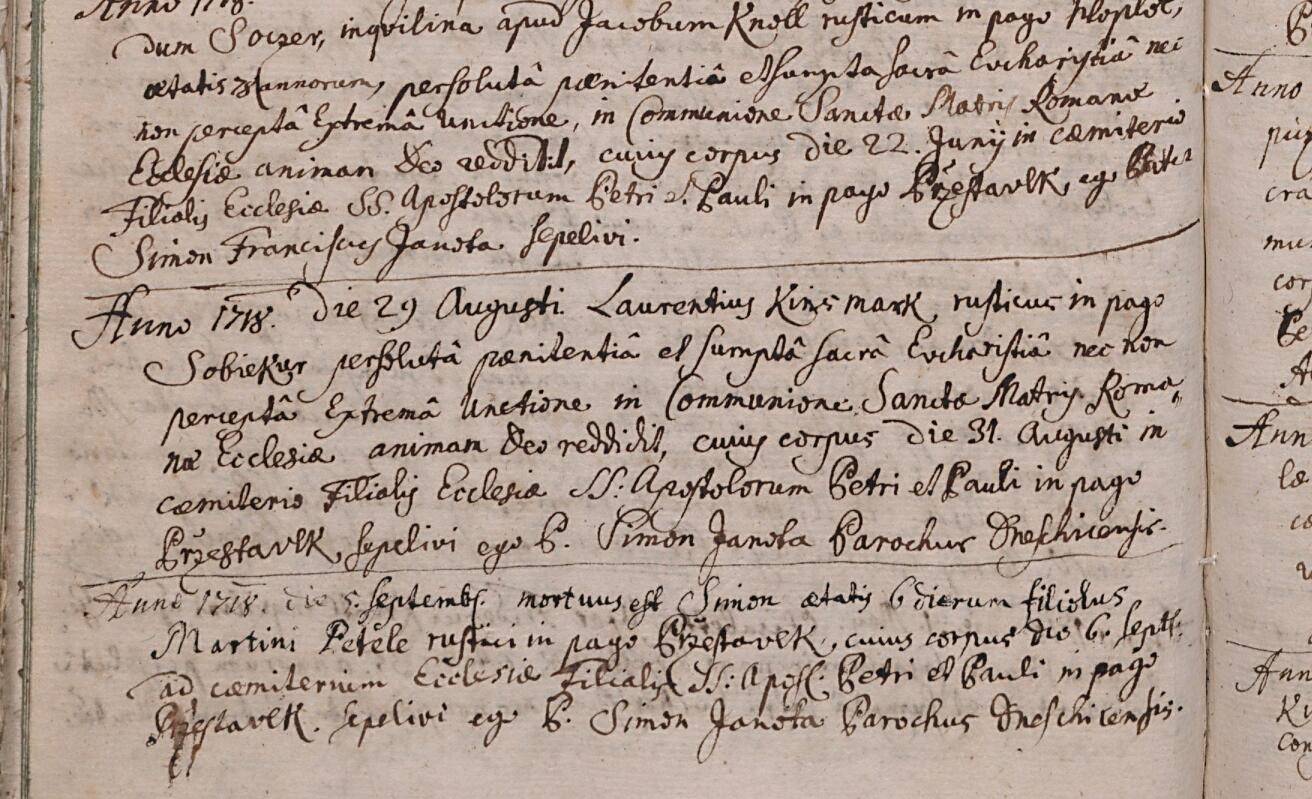 Anno 1718.
dum Soczer, inqvilina apud Jacobum Knoll rusticum in pago
ætatis annorum, persolutâ pænitentiâ et sumpta sacrâ Evcharistiâ nec
non perceptâ Extremâ Unctione, in Communione Sanctæ Matris Romanæ
Ecclesiæ animam Deo reddidit, cuius corpus die 22. Junij in cæmiterio
Filialis Ecclesiæ SS. Apostolorum Petri et Pauli in pago Przestavlk, ego Pater
Simon Franciscus Janota sepelivi.
Anno 1718. Die 29 Augusti Laurentius Kinsmark rusticus in pago
Sobiekur persolutâ pænitentiâ et sumptâ sacrâ Evcharistiâ nec non
perceptâ Extremâ Unctione in Communione Sanctæ Matris Roma„
næ Ecclesiæ animam Deo reddidit, cuius corpus die 31. Augusti in
cæmiterio Filialis Ecclesiæ SS: Apostolorum Petri et Pauli in pago
Przestavlk, sepelivi ego P. Simon Janota Parochus Dneschicensis.
Anno 1718. die 5. septembs. mortuus est Simon ætatis 6 dierum filiolus
Martini Petele rustici in pago Przestavlk, cuius corpus die 6. septs:
ad cæmiterium Ecclesiæ Filialis SS: Apost: Petri et Pauli in pago
Przestavlk. sepelivi ego P. Simon Janota Parochus Dneschicensis.
Anno